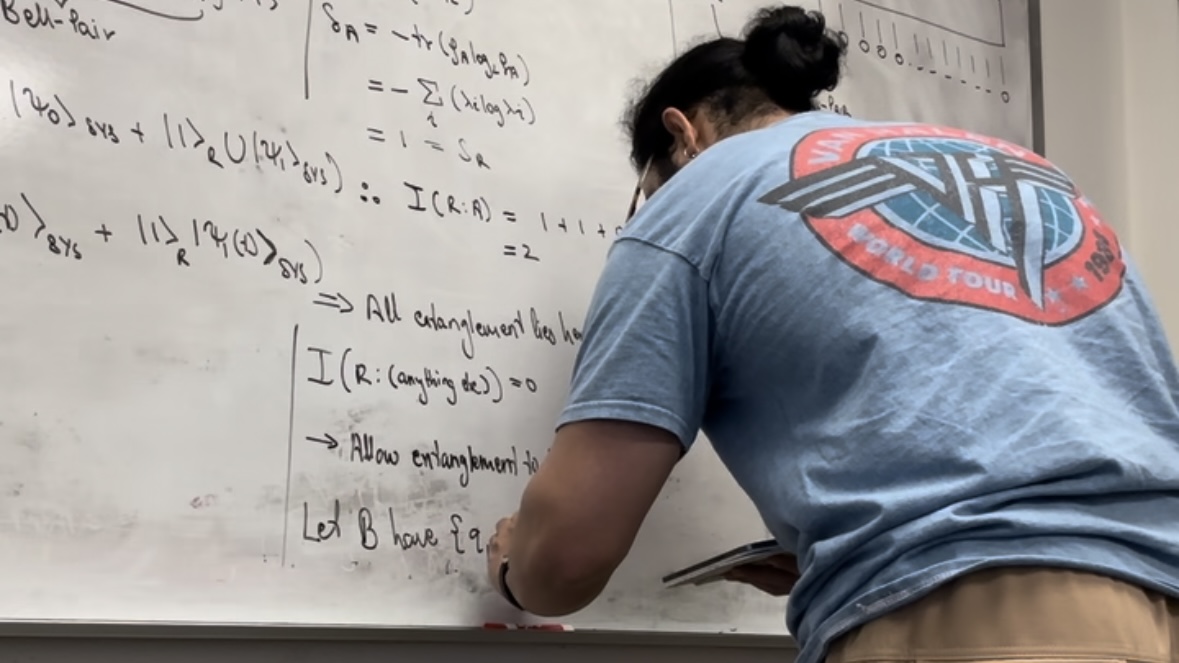 Bell-Pair
|Ψ₀⟩_SYS + |1⟩_R U(|Ψ₁⟩_SYS)
⟩_SYS + |1⟩_R |Ψ₁(t)⟩_SYS)
S_A = -tr(ρ_A log₂ρ_A)
= - Σ_i (λi log λi)
= 1 = S_R
∴ I(R:A) = 1 + 1 +
= 2
⇒ All entanglement lies
I(R:(anything else)) = 0
→ Allow entanglement to
Let B have {q
VAN HALEN
VH
WORLD TOUR